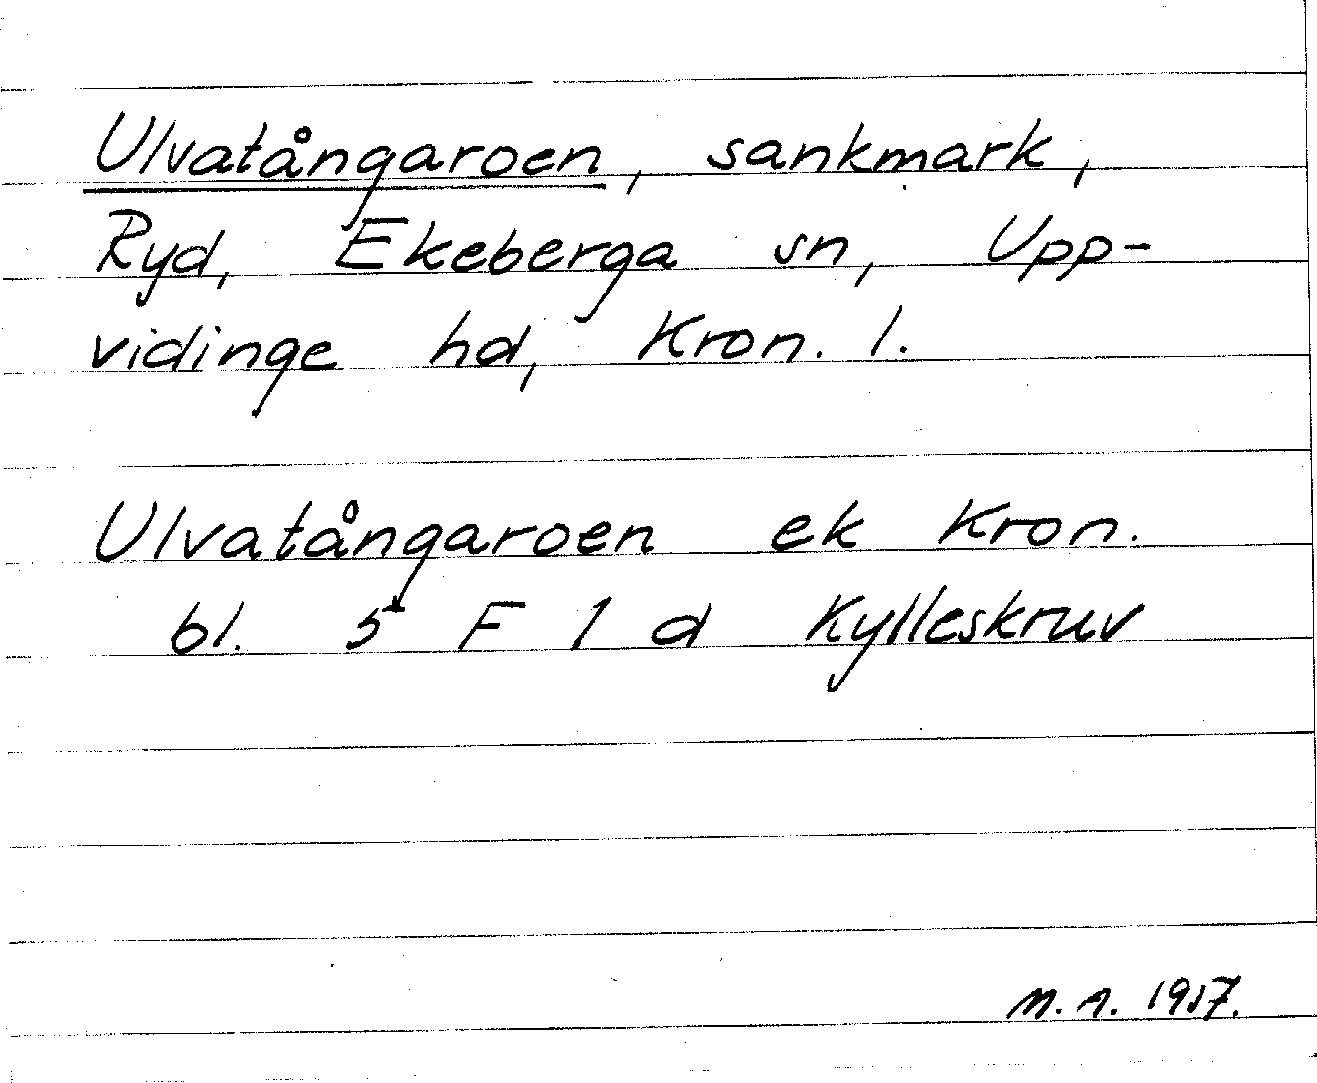 Ulvatångaroen, sankmark,
Ryd, Ekeberga sn, Upp-
vidinge hd, Kron. l.
Ulvatångaroen ek Kron.
bl. 5 F 1 d Kylleskruv
M. A. 1957.